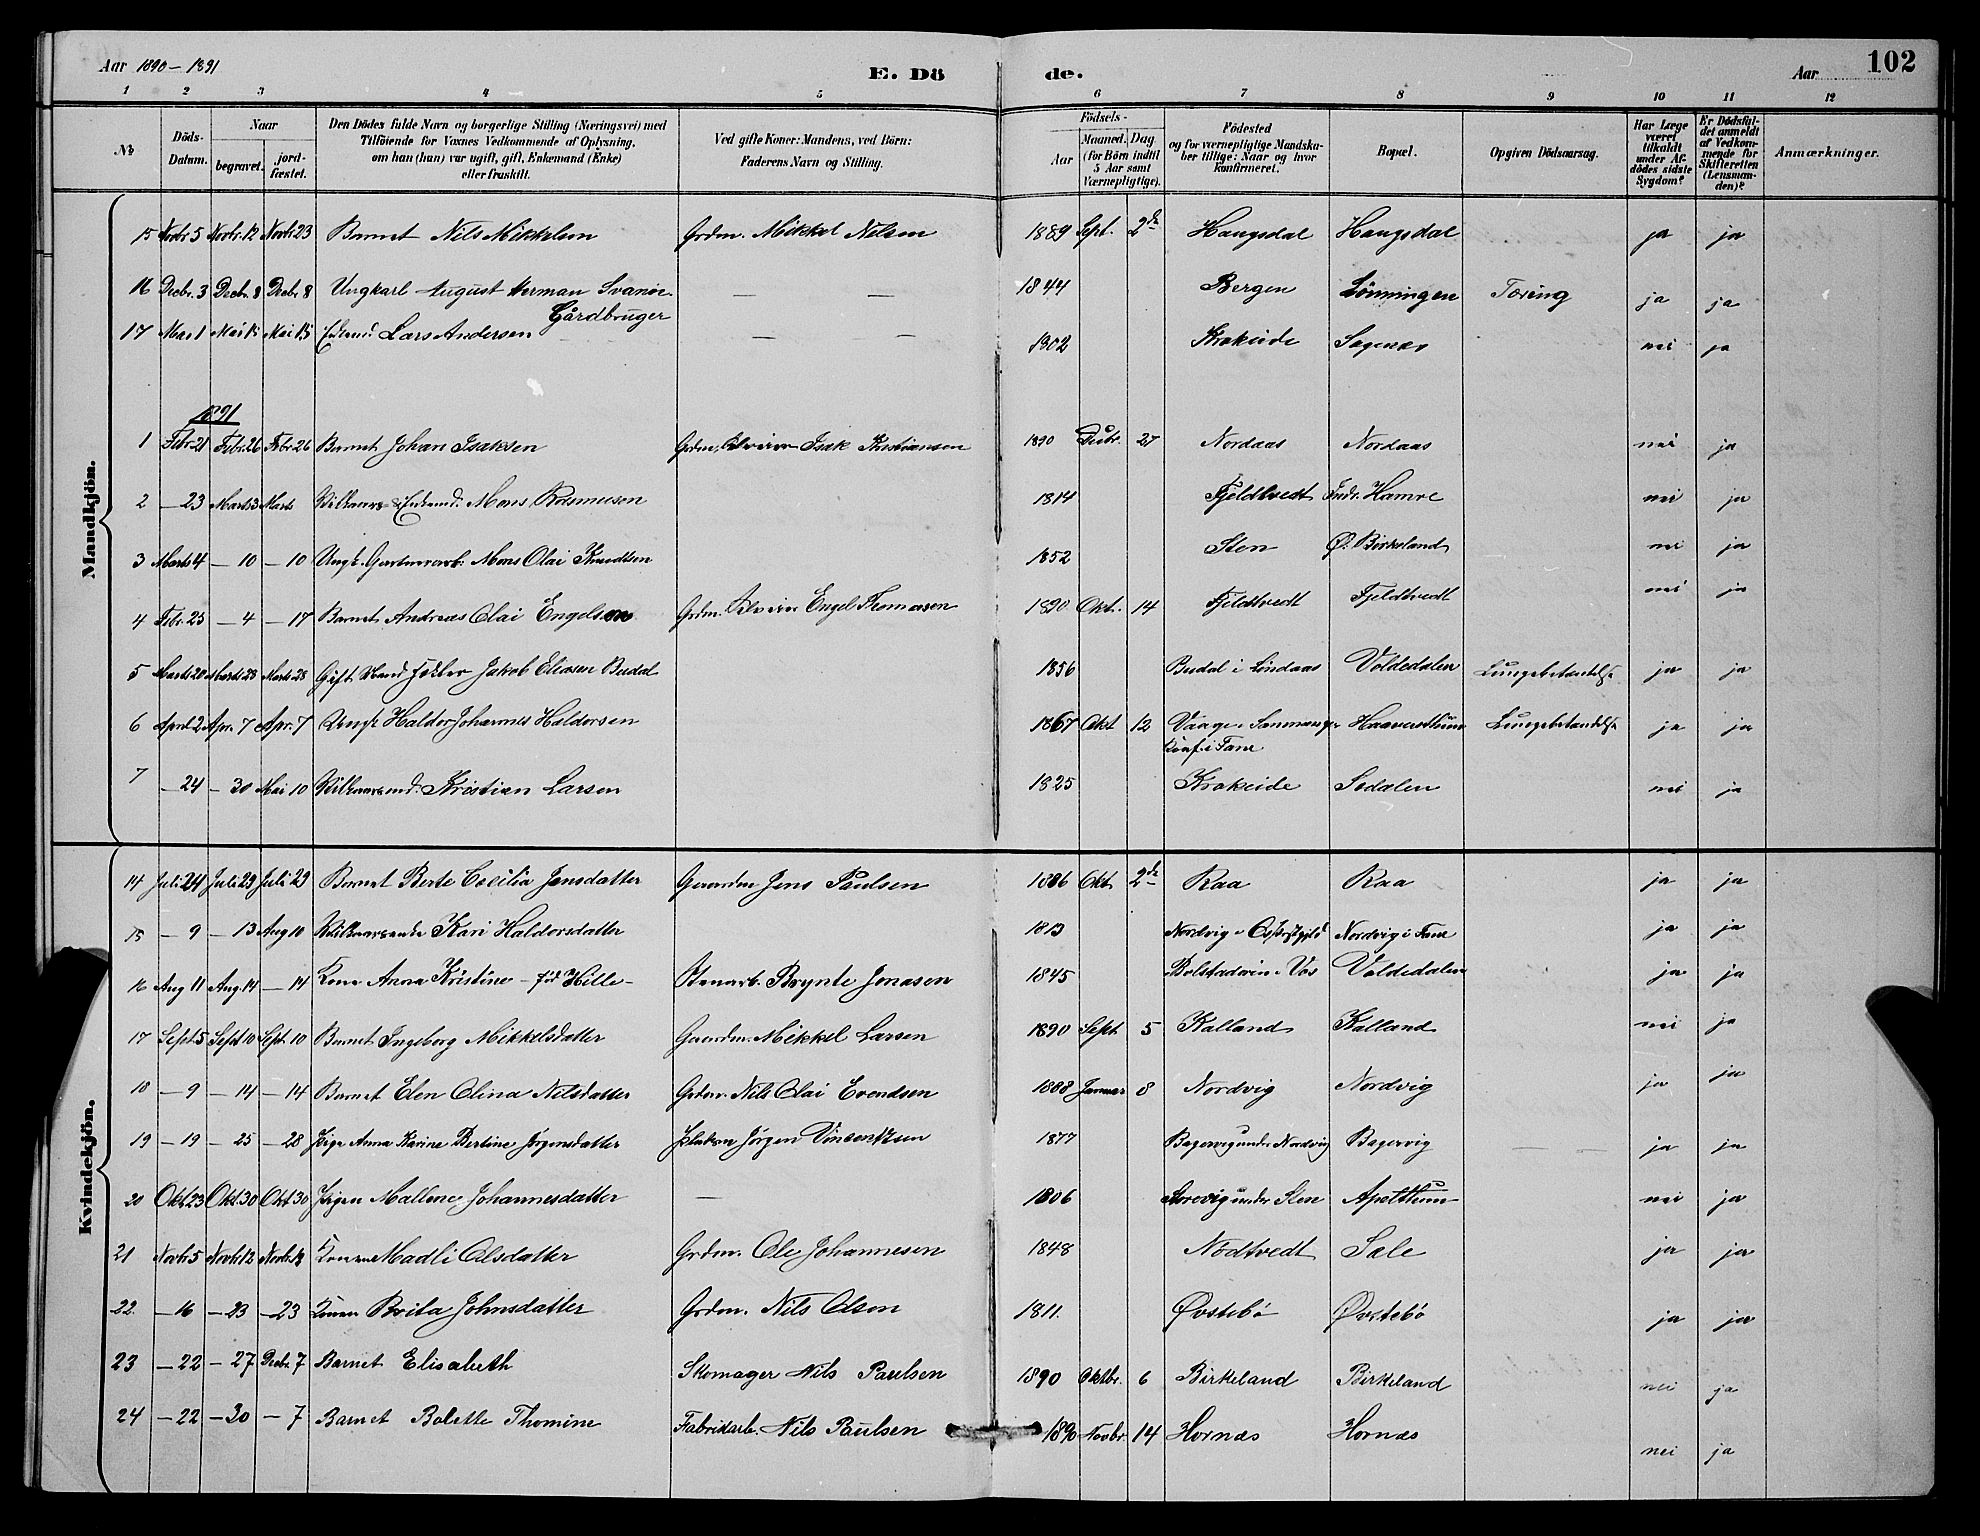 Aar 1890 – 1891
E. Dö de.
Aar 102
1 2 3 4 5 6 7 8 9 10 11 12
№
Döds-Datum.
Naar
begravet.
jord-fæstet.
Den Dödes fulde Navn og borgerlige Stilling (Næringsvei) med
Tilföiende for Voxnes Vedkommende af Oplysning,
om han (hun) var ugift, gift, Enkemand (Enke)
eller fraskilt.
Ved gifte Koner: Mandens, ved Börn:
Faderens Navn og Stilling.
Födsels-
Aar
Maaned. Dag
(for Börn indtil
5 Aar samt
Værnepligtige).
Födested
og for værnepligtige Mandska-
ber tillige: Naar og hvor
konfirmeret.
Bopæl.
Opgiven Dödsaarsag.
Har Læge
været
tilkaldt
under Af-
dödes sidste
Sygdom?
Er Dödsfal-
det anmeldt
af Vedkom-
mende for
Skifteretten
(Lensman-
den)?
Anmærkninger.
Mandkjön.
15 Novbr. 5 Novbr. 12 Novbr. 23 Barnet Nils Mikkelsen Grdm. Mikkel Nilsen 1889 Sept. 2de Haugsdal Haugsdal ja ja
16 Decbr. 3 Decbr. 8 Decbr. 8 Ungkarl August Herman Svanöe — — 1844 Bergen Lönningen Tæring ja ja
Gårdbruger
17 Mai 1 Mai 15 Mai 15 Enkemd. Lars Andersen — — 1802 Krokeide Sagenæs nei ja
1891
1 Febr. 21 Febr. 26 Febr. 26 Barnet Johan Isaksen Grdm. Isak Kristiansen 1890 Decbr. 27 Nordaas Nordaas nei ja
2 — 23 Marts 3 Marts Vilkaars- & Enkemd. Mons Rasmussen 1814 Fjeldtvedt Indr. Hamre nei ja
3 Marts 4 — 10 — 10 Ungk. Gartnerarb. Mons Olai Knudtsen 1852 Sten Ø. Birkeland nei ja
4 Febr. 25 — 4 — 17 Barnet Andreas Olai Engelsen Grdm. Engel Thomasen 1890 Okt. 14 Fjeldtvedt Fjeldtvedt nei ja
5 Marts 20 Marts 23 Marts 28 Gift Mand Jakob Eliasen Budal 1856 Budal i Lindaas Voldedalen Lungebetændelse ja ja
6 April 2 Apr. 7 Apr. 7 Ungk. Haldor Johannes Haldorsen 1867 Okt 12 Vaage i Samnanger Lungebetændelse ja ja
Konf. i Fane
7 — 24 — 30 Mai 10 Vilkaarsmd. Kristian Larsen 1825 Krokeide Sædalen nei ja
Kvindekjön.
14 Juli 24 Juli 29 Juli 29 Barnet Berte Cecilia Jensdatter Gaardm Jens Paulsen 1886 Okt. 2de Raa Raa ja ja
15 — 9 — 13 Aug 10 Vilkaarsenke Kari Haldorsdatter 1813 Nordvig i Nordvig i Fane ja ja
16 Aug 11 Aug. 14 — 14 Kone Anna Kristine – föd Hille – Stenarb. Brynte Jonasen 1845 Bolstadören i Vos Voldedalen ja ja
17 Sept 5 Sept 10 Sept. 10 Barnet Ingeborg Mikkelsdatter Gaardm. Mikkel Larsen 1890 Sept 5 Kalland Kalland nei ja
18 — 9 — 14 — 14 Barnet Elen Olina Nilsdatter Grdm. Nils Olai Evendsen 1888 Januar 8 Nordvig Nordvig ja ja
19 — 19 — 25 — 28 Pige Anna Karine Bertine Jörgensdatter Jörgen Vincentzsen 1877 Bagervig under Nordvig Bagervig — — ja ja
20 Okt 23 Okt 30 Okt 30 Pigen Mallene Johannesdatter — 1806 Storevig under Sten Apelthun nei ja
21 Novbr. 5 Novbr. 12 Novbr. 14 Konen Madli Olsdatter Grdm. Ole Johannesen 1848 Nödtvedt Sæle ja ja
22. — 16 — 23 — 23 Konen Brita Johnsdatter Grdm. Nils Olsen 1811. Øvstebö Øvstebö ja ja
23 — 22 — 27 Decbr. 7 Barnet Elisabeth Skomager Nils Paulsen 1890 Oktbr. 6 Birkeland Birkeland nei ja
24 — 22 — 30 — 7 Barnet Bolette Thomine Fabrikarb. Nils Paulsen 1890 Novbr. 14 Hornæs Hornæs nei ja